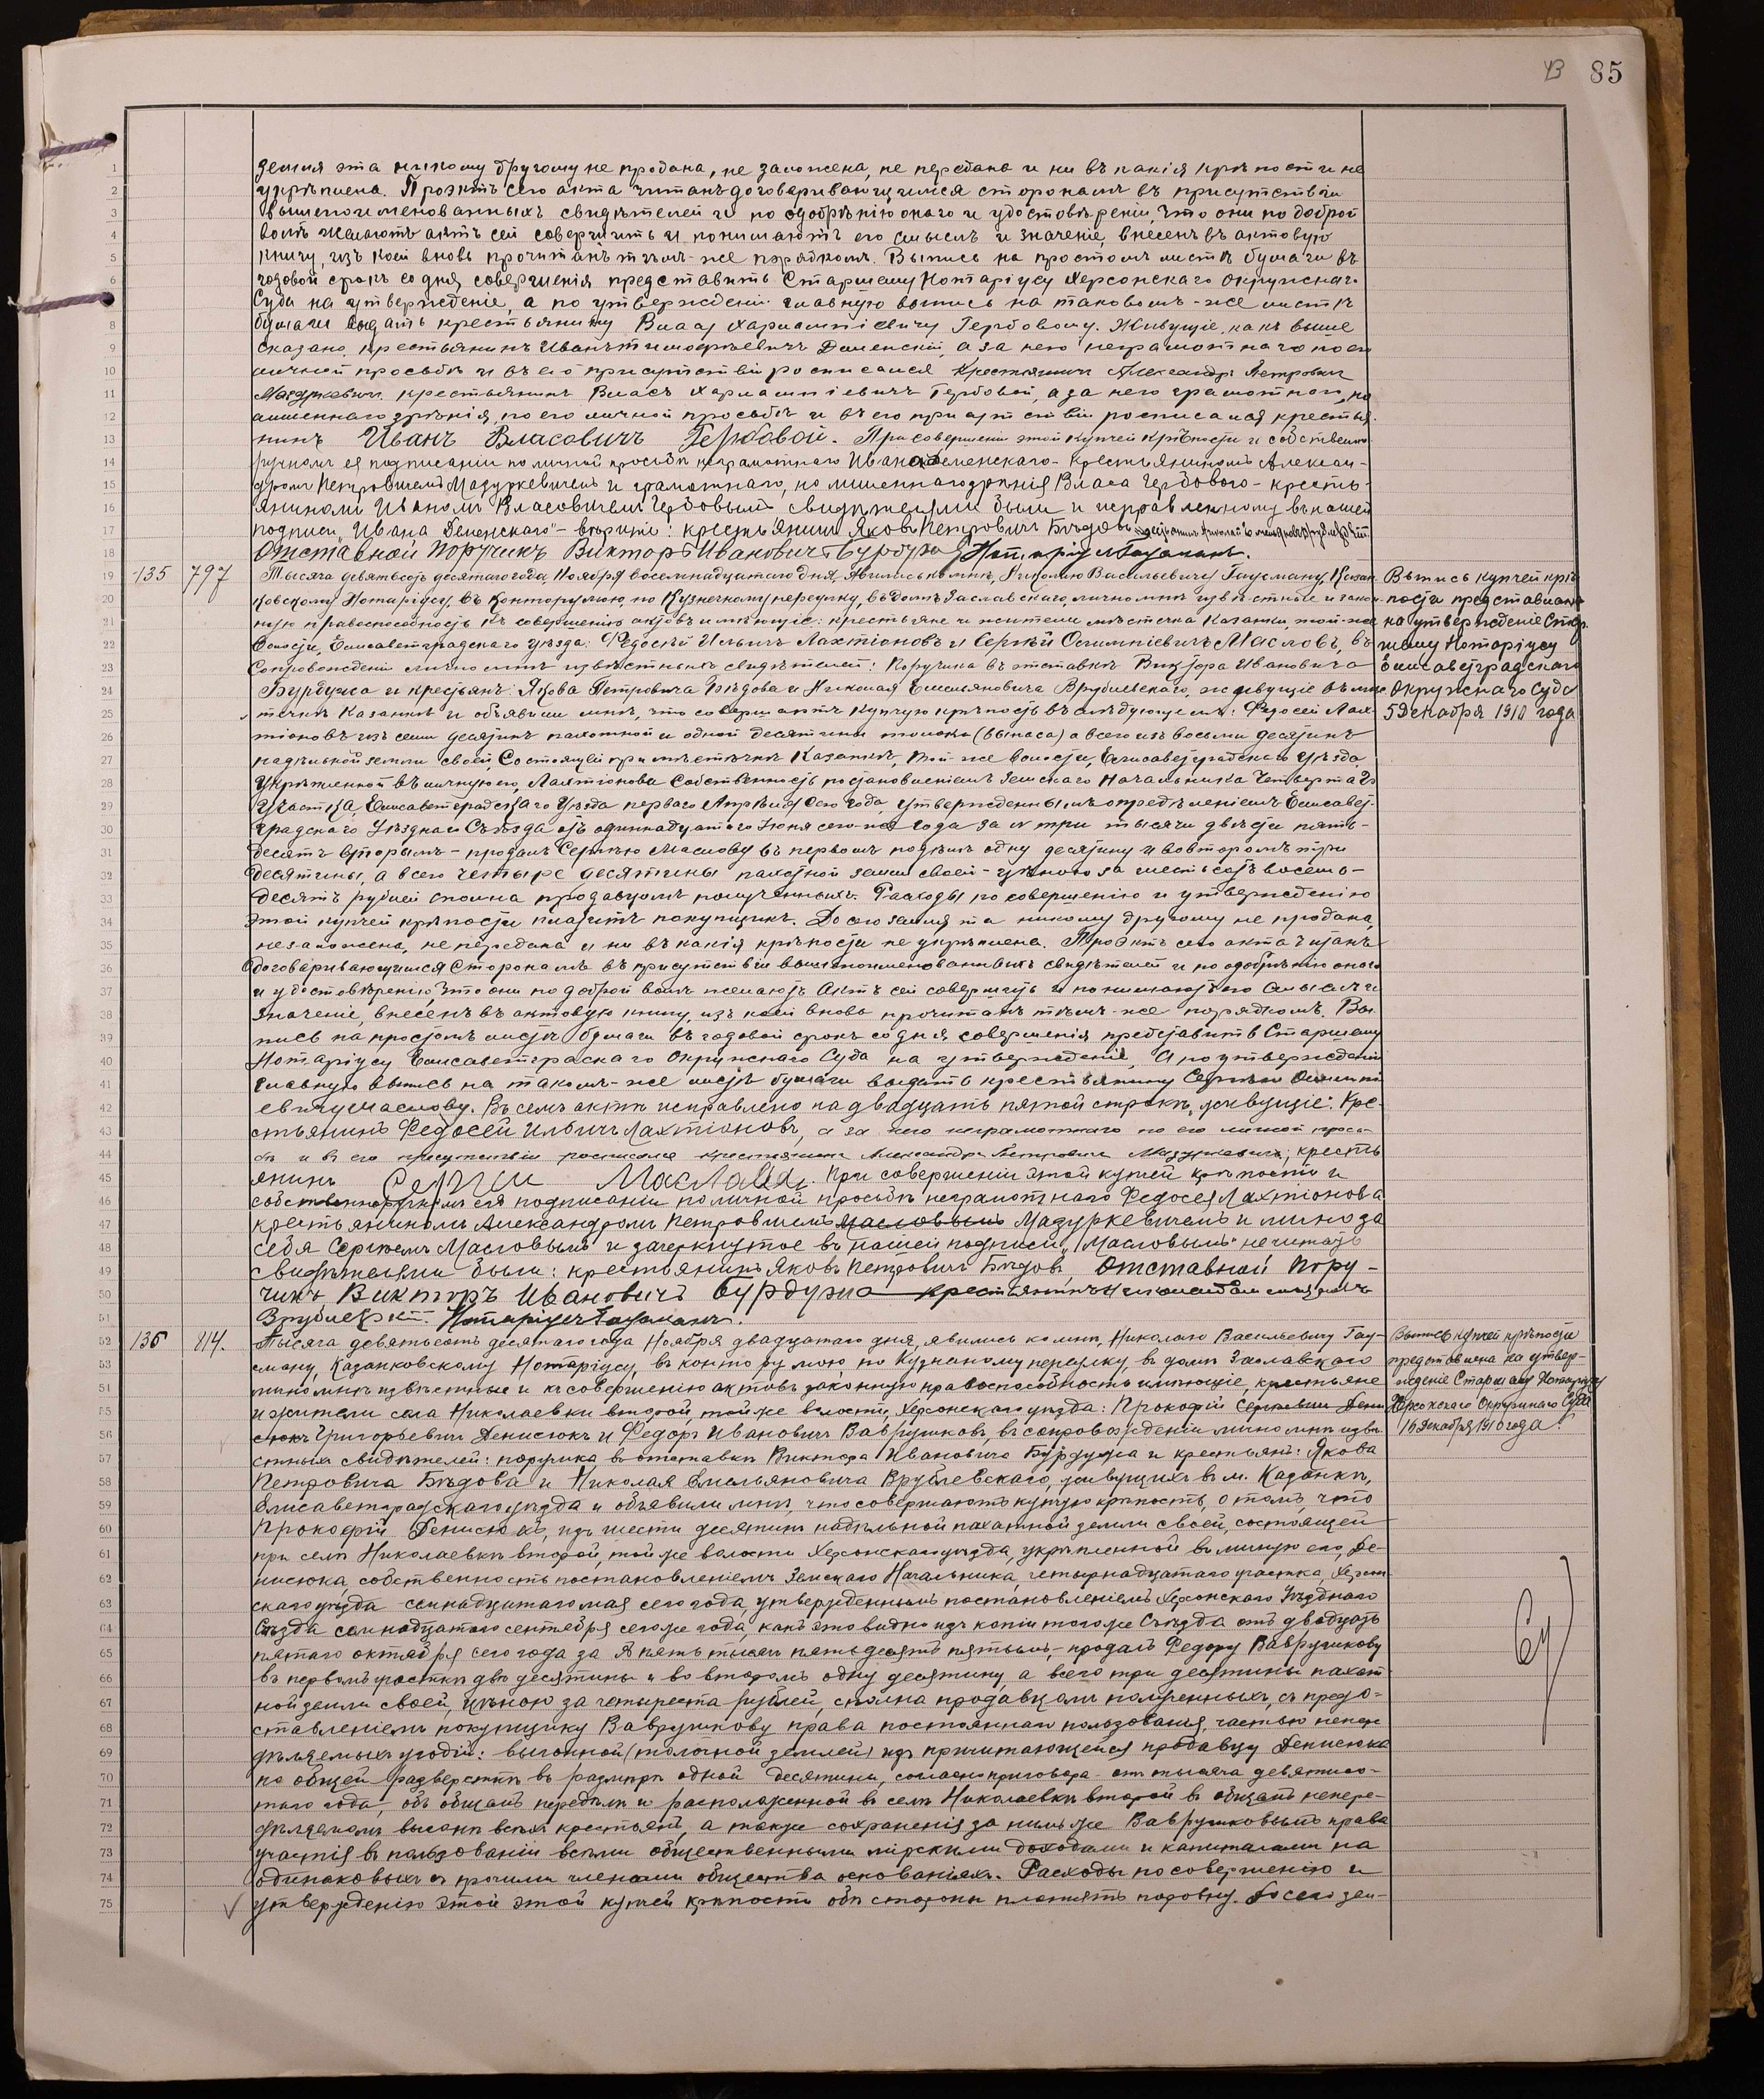 43 85
1 земля эта никому другому не продана, не заложена, не передана и ни въ какія крѣпости не
2 укрѣплена. Проэктъ сего акта читанъ договаривающимся сторонамъ въ присутствіи
3 вышепоименованныхъ свидѣтелей и по одобрѣнію онаго и удостовѣреніи, что они по доброй
4 волѣ желаютъ актъ сей совершить и понимаютъ его смыслъ и значеніе, внесенъ въ актовую
5 книгу, изъ коей вновь прочитанъ тѣмъ-же порядкомъ. Выпись на простомъ листѣ бумаги въ
6 годовой срокъ со дня совершенія представить Старшему Нотаріусу Херсонскаго Окружнаго
Суда на утвержденіе, а по утвержденіи главную выпись на таковомъ-же листѣ
8 бумаги выдать крестьянину Власу Харлампіевичу Гербовому. Живущіе, какъ выше
9 сказано, крестьянинъ Иванъ Тимофѣевичъ Деменскій, а за него неграмотнаго по его
10 личной просьбѣ и въ его присутствіи росписался Крестьянинъ Александръ Петровичъ
11 Мазуркевичъ. крестьянинъ Власъ Харлампіевичъ Гербовой, а за него грамотнаго, но
12 лишеннаго зрѣнія, по его личной просьбѣ и въ его присутствіи росписался крестья-
13 нинъ Иванъ Власовичъ Гербовой. При совершеніи этой купчей крѣпости и собственно-
14 ручномъ ея подписаніи по личной просьбѣ неграмотнаго Ивана Деменскаго - крестьяниномъ Алексан-
15 дромъ Петровичемъ Мазуркевичемъ и грамотнаго, но лишеннаго зрѣнія Власа Гербового - кресть-
16 яниномъ Иваномъ Власовичемъ Гербовымъ свидѣтелями были и исправленному въ нашей
17 подписи „Ивана Деменскаго" - вѣрить: крестьянинъ Яковъ Петровичъ Бѣдовъ, крестьянинъ Николай Емельяновичъ Врублевскій
18 Отставной Поручикъ Викторъ Ивановичъ Бурдужа Нотаріусъ Гаусманъ.
19 135 797 Тысяча девятьсотъ десятаго года, Ноября восемнадцатаго дня, явились ко мнѣ, Николаю Васильевичу Гаусману, Казан- Выпись купчей крѣ-
20 ковскому Нотаріусу, въ контору мою, по Кузнечному переулку, въ домѣ Заславскаго, лично мнѣ извѣстные и закон- пости представлена
21 ную правоспособность къ совершенію актовъ имѣющіе: крестьяне и жители мѣстечка Казанки, той-же на утвержденіе Стар-
22 волости, Елисаветградскаго уѣзда: Федосѣй Ильичъ Лахтіоновъ и Сергѣй Олимпіевичъ Масловъ, въ шему Нотаріусу
23 сопровожденіи лично мнѣ извѣстныхъ свидѣтелей: Поручика въ отставкѣ Виктора Ивановича Елисаветградскаго
24 Бурдужа и крестьянъ: Якова Петровича Бѣдова и Николая Емельяновича Врублевскаго, живущіе въ мѣс- Окружнаго Суда
25 течкѣ Казанкѣ и объявили мнѣ, что совершаютъ купчую крѣпость въ слѣдующемъ: Федосѣй Лах- 5 Декабря 1910 года
26 тіоновъ изъ семи десятинъ пахотной и одной десятины толоки (выпаса) а всего изъ восьми десятинъ
27 надѣльной земли своей, состоящей при мѣстечкѣ Казанкѣ, той-же волости, Елисаветградскаго уѣзда,
28 укрѣпленной въ личную его, Лахтіонова собственность постановленіемъ Земскаго Начальника Четвертаго
29 участка, Елисаветградскаго уѣзда перваго Апрѣля сего года, утвержденнымъ опредѣленіемъ Елисавет-
30 градскаго Уѣзднаго Съѣзда отъ одиннадцатаго Іюня сего-же года за № три тысячи двѣсти пять-
31 десятъ вторымъ - продалъ Сергѣю Маслову въ первомъ полѣ одну десятину и во второмъ три
32 десятины, а всего четыре десятины пахотной земли своей - цѣною за шестьсотъ восемь-
33 десятъ рублей сполна продавцомъ полученныхъ. Расходы по совершенію и утвержденію
34 этой купчей крѣпости платитъ покупщикъ. До сего земля та никому другому не продана,
35 не заложена, не передана и ни въ какія крѣпости не укрѣплена. Проэктъ сего акта читанъ
36 договаривающимся сторонамъ въ присутствіи вышепоименованныхъ свидѣтелей и по одобрѣнію онаго
37 и удостовѣренію, что они по доброй волѣ желаютъ актъ сей совершить и понимаютъ его смыслъ и
38 значеніе, внесенъ въ актовую книгу, изъ коей вновь прочитанъ тѣмъ-же порядкомъ. Вы-
39 пись на простомъ листѣ бумаги въ годовой срокъ со дня совершенія представить Старшему
40 Нотаріусу Елисаветграскаго Окружнаго Суда на утвержденіе, а по утвержденіи
41 главную выпись на такомъ-же листѣ бумаги выдать крестьянину Сергѣю Олимпі-
42 евичу Маслову. Въ семъ актѣ исправлено на двадцать пятой строкѣ „живущіе". Кре-
43 стьянинъ Федосѣй Ильичъ Лахтіоновъ, а за него неграмотнаго по его личной прось-
44 бѣ и въ его присутствіи росписался крестьянинъ Александръ Петровичъ Мазуркевичъ; кресть-
45 янинъ Сергѣй Маслова. При совершеніи этой купчей крѣпости и
46 собственноручномъ ея подписаніи по личной просьбѣ неграмотнаго Федосея Лахтіонова
47 крестьяниномъ Александромъ Петровичемъ Масловымъ Мазуркевичемъ и лично за
48 себя Сергѣемъ Масловымъ и зачеркнутое въ нашей подписи „Масловымъ" не читать
49 свидѣтелями были: крестьянинъ Яковъ Петровичъ Бѣдовъ, Отставной Пору-
50 чикъ Викторъ Ивановичъ Бурдужа крестьянинъ Николай Емельяновичъ
51 Врублевскій. Нотаріусъ Гаусманъ.
52 136 814. Тысяча девятьсотъ десятаго года Ноября двадцатаго дня, явились ко мнѣ, Николаю Васильевичу Гау- Выпись купчей крѣпости
53 сману, Казанковскому Нотаріусу, въ контору мою, по Кузнечному переулку, въ домѣ Заславскаго представлена на утвер-
54 лично мнѣ извѣстные и къ совершенію актовъ законную правоспособность имѣющіе, крестьяне жденіе Старшему Нотаріусу
55 и жители села Николаевки второй, той же волости, Херсонскаго уѣзда: Прокофій Сергѣевичъ Дени- Херсонскаго Окружнаго Суда
56 сюкъ Григорьевичъ Денисюкъ и Федоръ Ивановичъ Вавруниковъ, въ сопровожденіи лично мнѣ извѣ- 16 Декабря 1910 года.
57 стныхъ свидѣтелей: поручика въ отставкѣ Виктора Ивановича Бурдужа и крестьянъ: Якова
58 Петровича Бѣдова и Николая Емельяновича Врублевскаго, живущихъ въ м. Казанкѣ,
59 Елисаветградскаго уѣзда и объявили мнѣ, что совершаютъ купчую крѣпость, о томъ, что
60 Прокофій Денисюкъ, изъ шести десятинъ надѣльной пахатной земли своей, состоящей
61 при селѣ Николаевкѣ второй, той же волости Херсонскаго уѣзда, укрѣпленной въ личную его, Де-
62 нисюка, собственность постановленіемъ Земскаго Начальника, четырнадцатаго участка, Херсон-
63 скаго уѣзда семнадцатаго мая сего года, утвержденнымъ постановленіемъ Херсонскаго Уѣзднаго
64 Съѣзда семнадцатаго сентября сего же года, какъ это видно изъ копіи того же Съѣзда отъ двадцать
65 пятаго октября сего года за № пять тысячъ пятьдесятъ пятымъ, - продалъ Федору Вавруникову
66 въ первомъ участкѣ двѣ десятины и во второмъ одну десятину, а всего три десятины пахот-
67 ной земли своей, цѣною за четыреста рублей, сполна продавцомъ полученныхъ, съ предо-
68 ставленіемъ покупщику Вавруникову права постояннаго пользованія, частью непере-
69 дѣляемыхъ угодій: выгонной (толочной землей) изъ причитающейся продавцу Денисюка
70 по общей разверсткѣ въ размѣрѣ одной десятины, согласно приговора отъ тысяча девятисо-
71 таго года, объ общемъ передѣлѣ и расположенной въ селѣ Николаевкѣ второй въ общемъ непере-
72 дѣляемомъ выгонѣ всѣхъ крестьянъ, а также сохраненія за нимъ же Вавруниковымъ права
73 участія въ пользованіи всѣми общественными мірскими доходами и капиталами на
74 одинаковыхъ съ прочими членами общества основаніяхъ. Расходы по совершенію и
75 утвержденію этой этой купчей крѣпости обѣ стороны платятъ поровну. До сего зем-